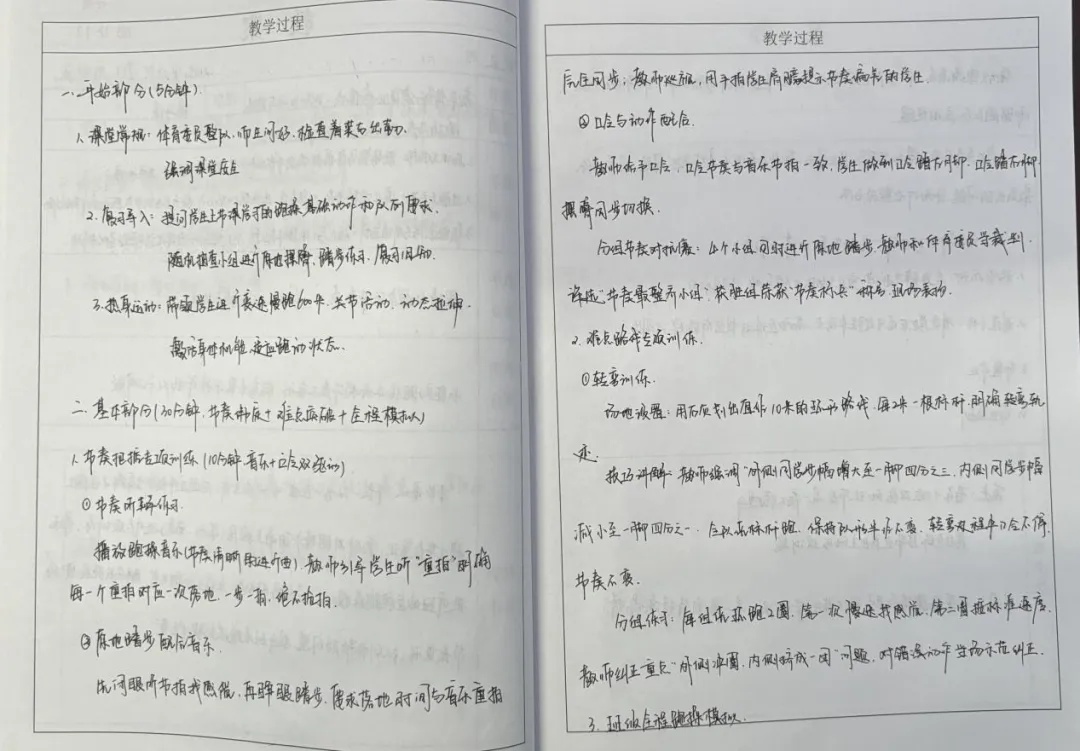 教学过程
一、开始部分(5分钟)
1、课堂常规：体育委员整队，师生问好，检查着装与出勤，
强调课堂安全
2、复习导入：提问学生上节课学习的跑操基础动作和队列要求，
随机抽查小组进行原地摆臂、踏步练习，复习旧知。
3、热身运动：带领学生进行变速慢跑600米，关节活动，动态拉伸，
激活身体机能，适应跑动状态。
二、基本部分(30分钟，节奏+难点突破+全程模拟)
1、节奏把控专项训练(10分钟 音乐+口令双强训)
①节奏听辨练习
播放跑操音乐(节奏清晰的进行曲)，教师引导学生听"重拍"明确
每一个重拍对应一次落地，一步一拍，绝不抢拍。
②原地踏步配合音乐
先闭眼听节拍找感觉，再睁眼踏步，要求落地时间与音乐重拍
教学过程
后压同步；教师巡视，用手拍学生肩膀提示节奏偏差的学生
②口令与动作配合
教师给予口令，口令节奏与音乐节拍一致，学生做到口令踏左脚，口令踏右脚
摆臂同步切换。
分组节奏对抗赛：4个小组同时进行原地踏步，教师和体育委员当裁判，
评选"节奏最整齐小组"，获胜组荣获"节奏标兵"称号且加表扬。
2、难点路线专项训练。
①转弯训练。
场地设置：用石灰划出直径10米的环形路线，每2米一根标杆，明确转弯轨
迹
技巧讲解：教师强调"外侧同学步幅增大至一脚四分之三，内侧同学步幅
减小至一脚四分之一，全队标杆跑，保持队形半径不变，转弯过程口令不停，
节奏不变。
分组练习：每组依环跑2圈，第一次慢速找感觉，第二圈按标准速度，
教师纠正重点"外侧冲圈，内侧挤成一团"问题，对错误动作当场示范纠正
3、班级全程跑操模拟。